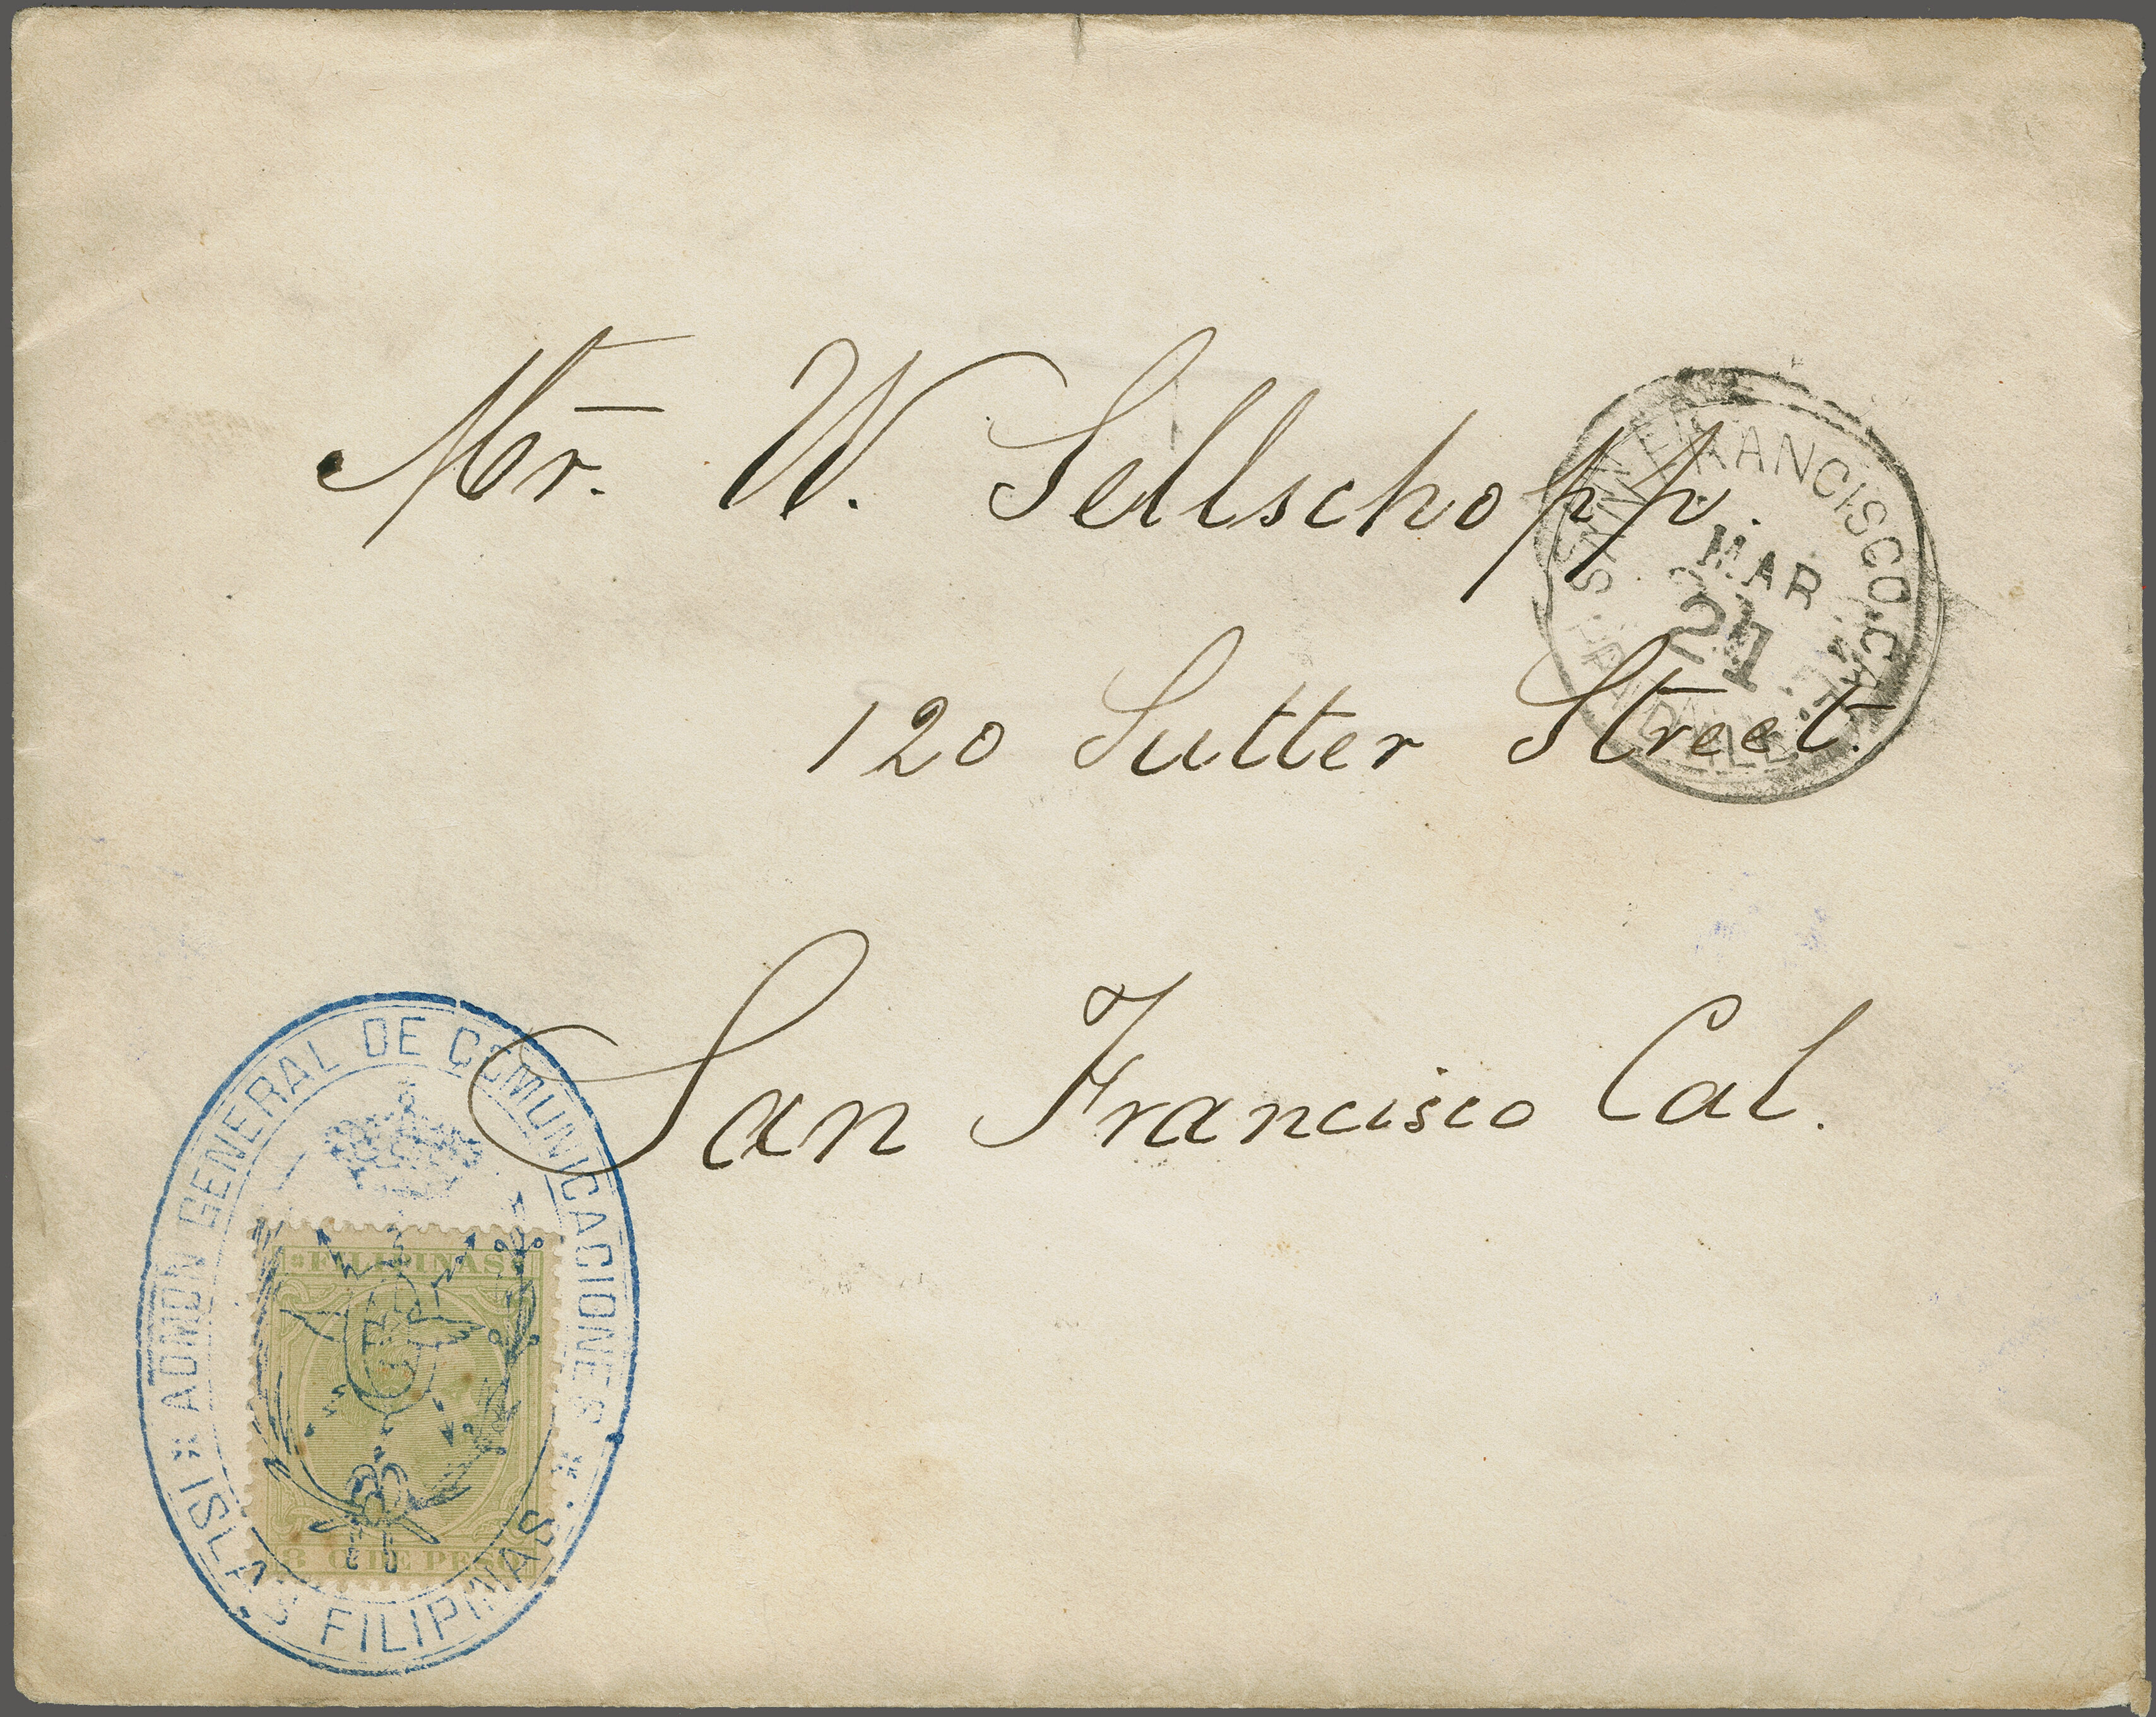 Mr. W. Sellschopp.
120 Sutter Street.
San Francisco Cal.
SAN FRANCISCO, CAL.
MAR
21
PAID ALL
* ADMON GENERAL DE COMUNICACIONES *
ISLAS FILIPINAS
FILIPINAS
8 C. DE PESO